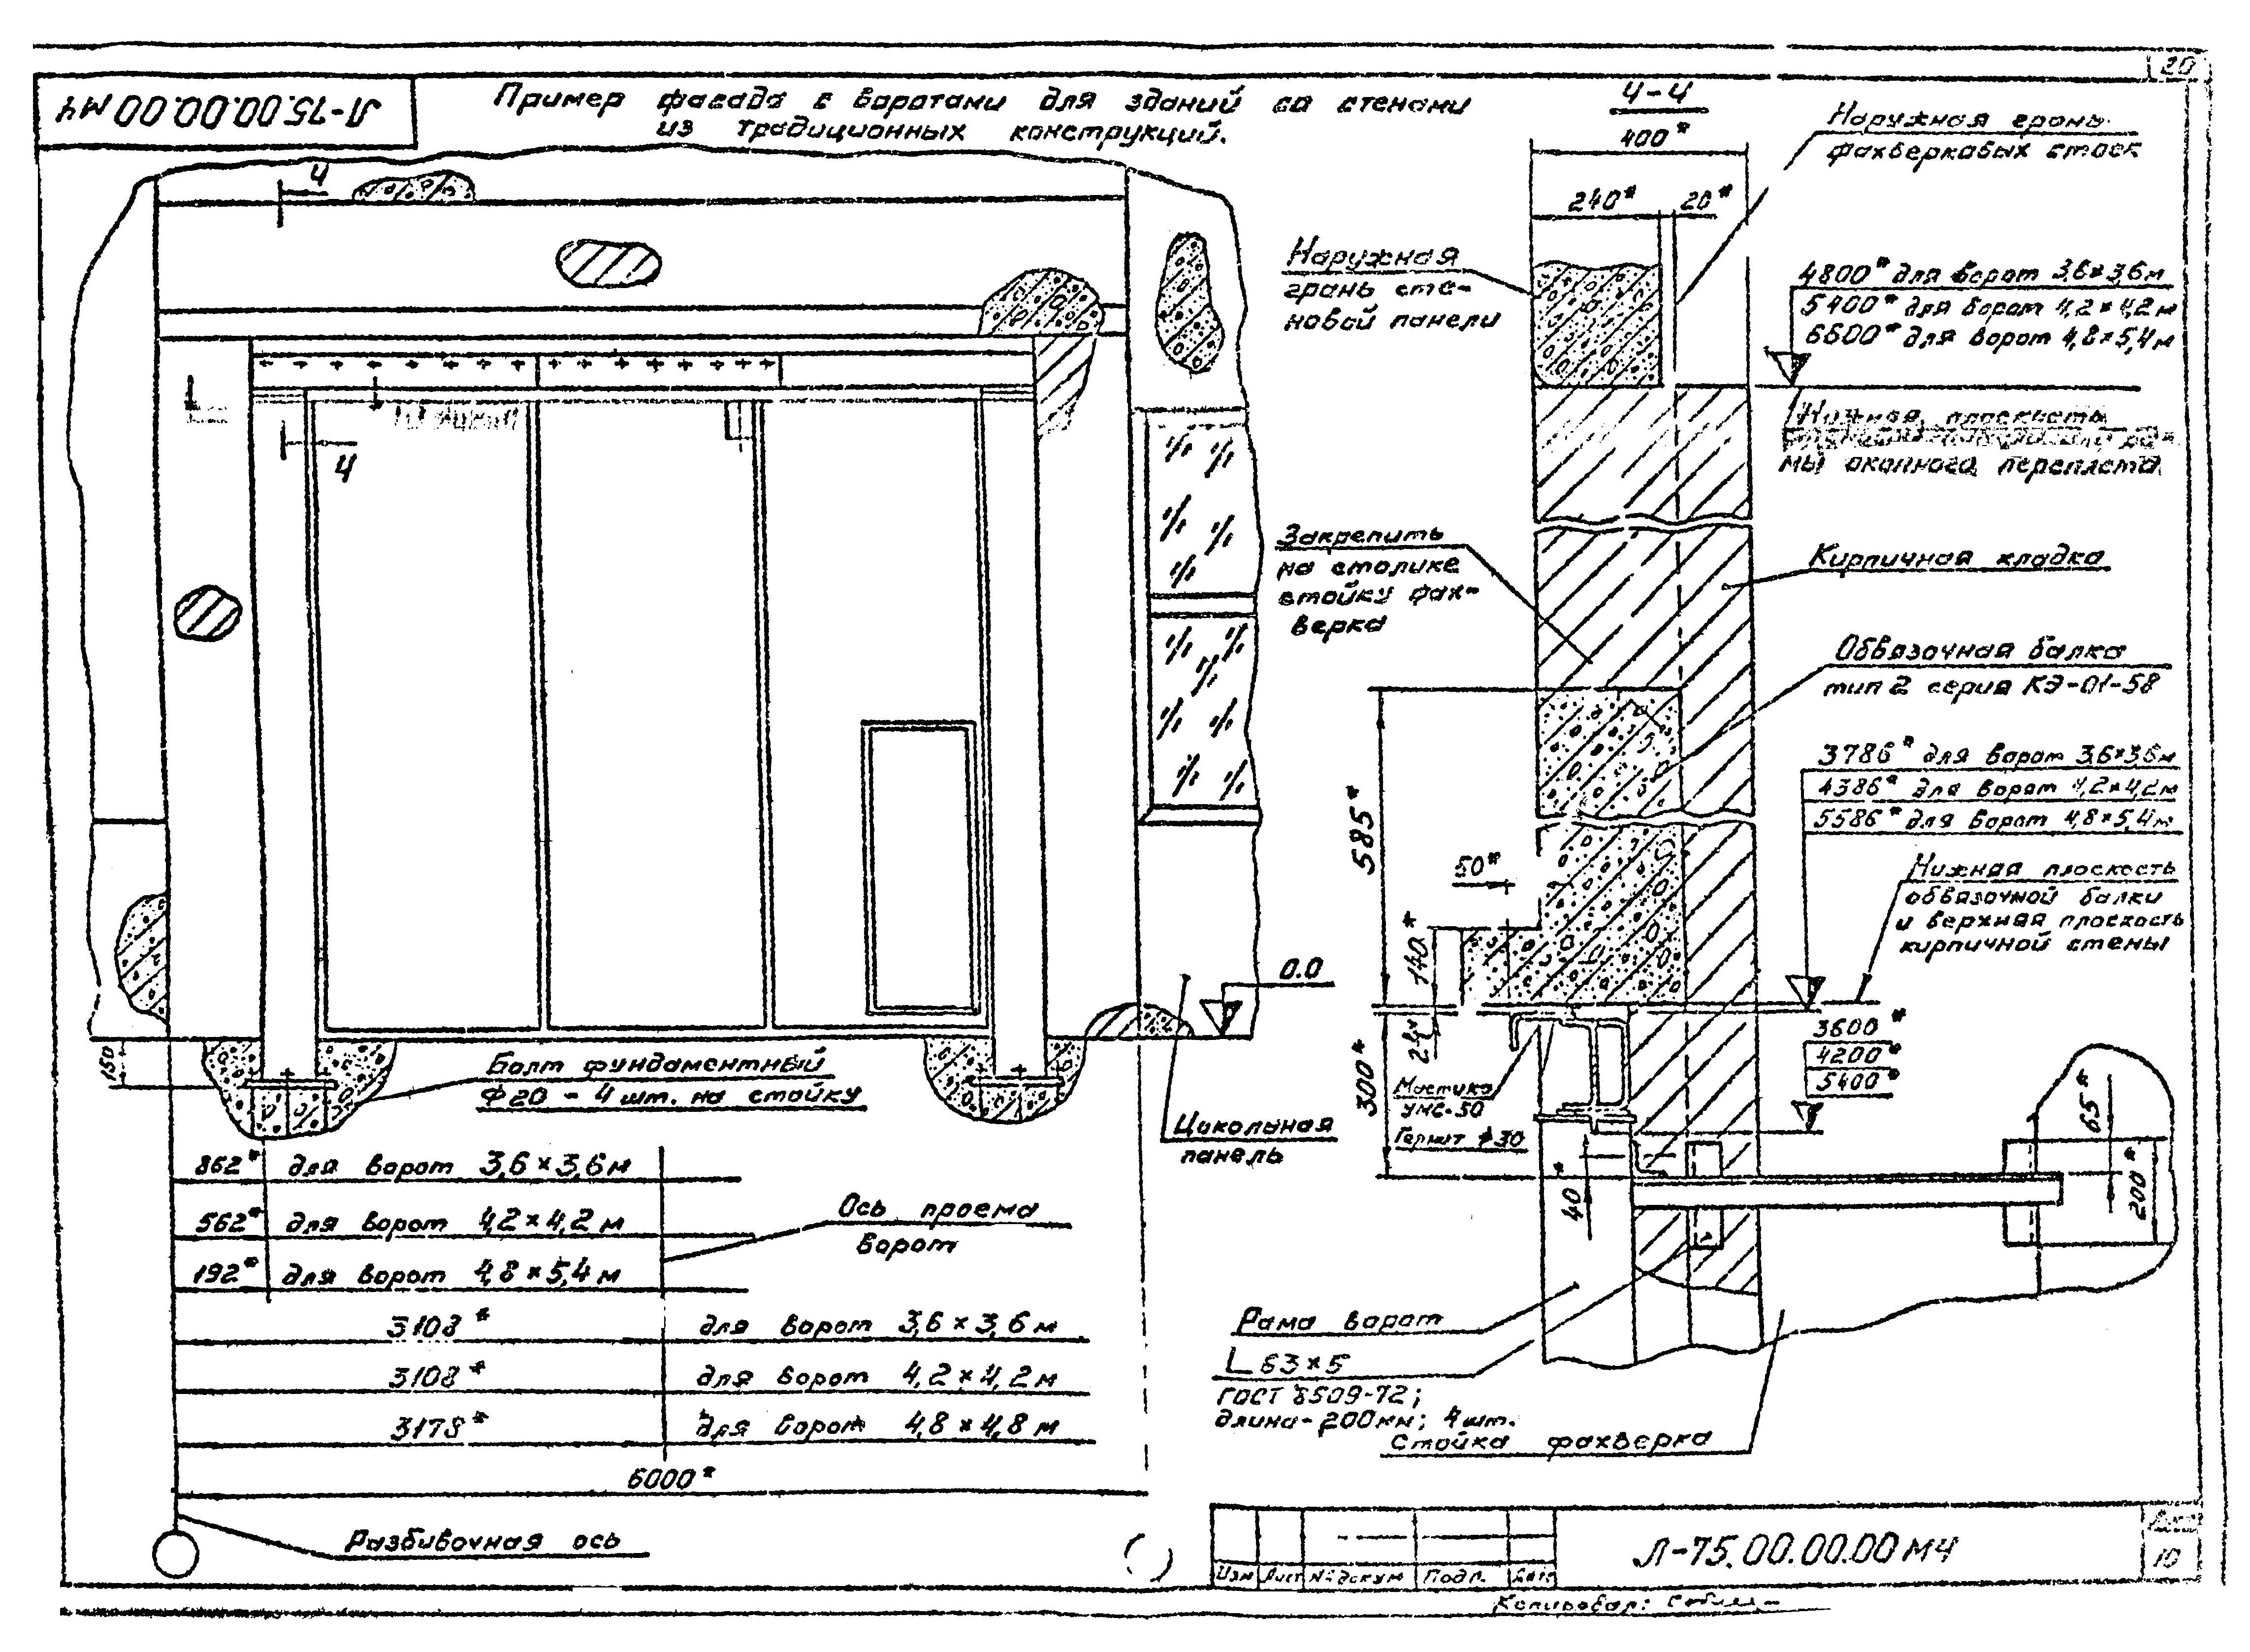 20
Л-75.00.00.00 МЧ
Пример фасада с воротами для зданий со стенами
из традиционных конструкций.
4
4
150
0.0
Болт фундаментный
Ф20 - 4 шт. на стойку
Цокольная
панель
862* для ворот 3,6×3,6 м
562* для ворот 4,2×4,2 м
192* для ворот 4,8×5,4 м
Ось проема
ворот
3108* для ворот 3,6×3,6 м
3108* для ворот 4,2×4,2 м
3178* для ворот 4,8×4,8 м
6000*
Разбивочная ось
4-4
400*
240* 20*
Наружная грань
фахверковых стоек
Наружная
грань сте-
новой панели
4800* для ворот 3,6×3,6 м
5400* для ворот 4,2×4,2 м
6600* для ворот 4,8×5,4 м
Нижняя плоскость
мы оконного переплета
Закрепить
на столике
стойку фах-
верка
Кирпичная кладка
Обвязочная балка
тип 2 серия КЭ-01-58
3786* для ворот 3,6×3,6 м
4386* для ворот 4,2×4,2 м
5586* для ворот 4,8×5,4 м
Нижняя плоскость
обвязочной балки
и верхняя плоскость
кирпичной стены
585*
50*
140*
24*
300*
Мастика
УМС-50
Гернит ф30
3600*
4200*
5400*
65*
200*
40*
Рама ворот
L 63×5
ГОСТ 8509-72;
длина-200мм; 4 шт.
Стойка фахверка
Изм Лист № докум Подп. Дата
Л-75.00.00.00 МЧ
Лист
10
Копировал: